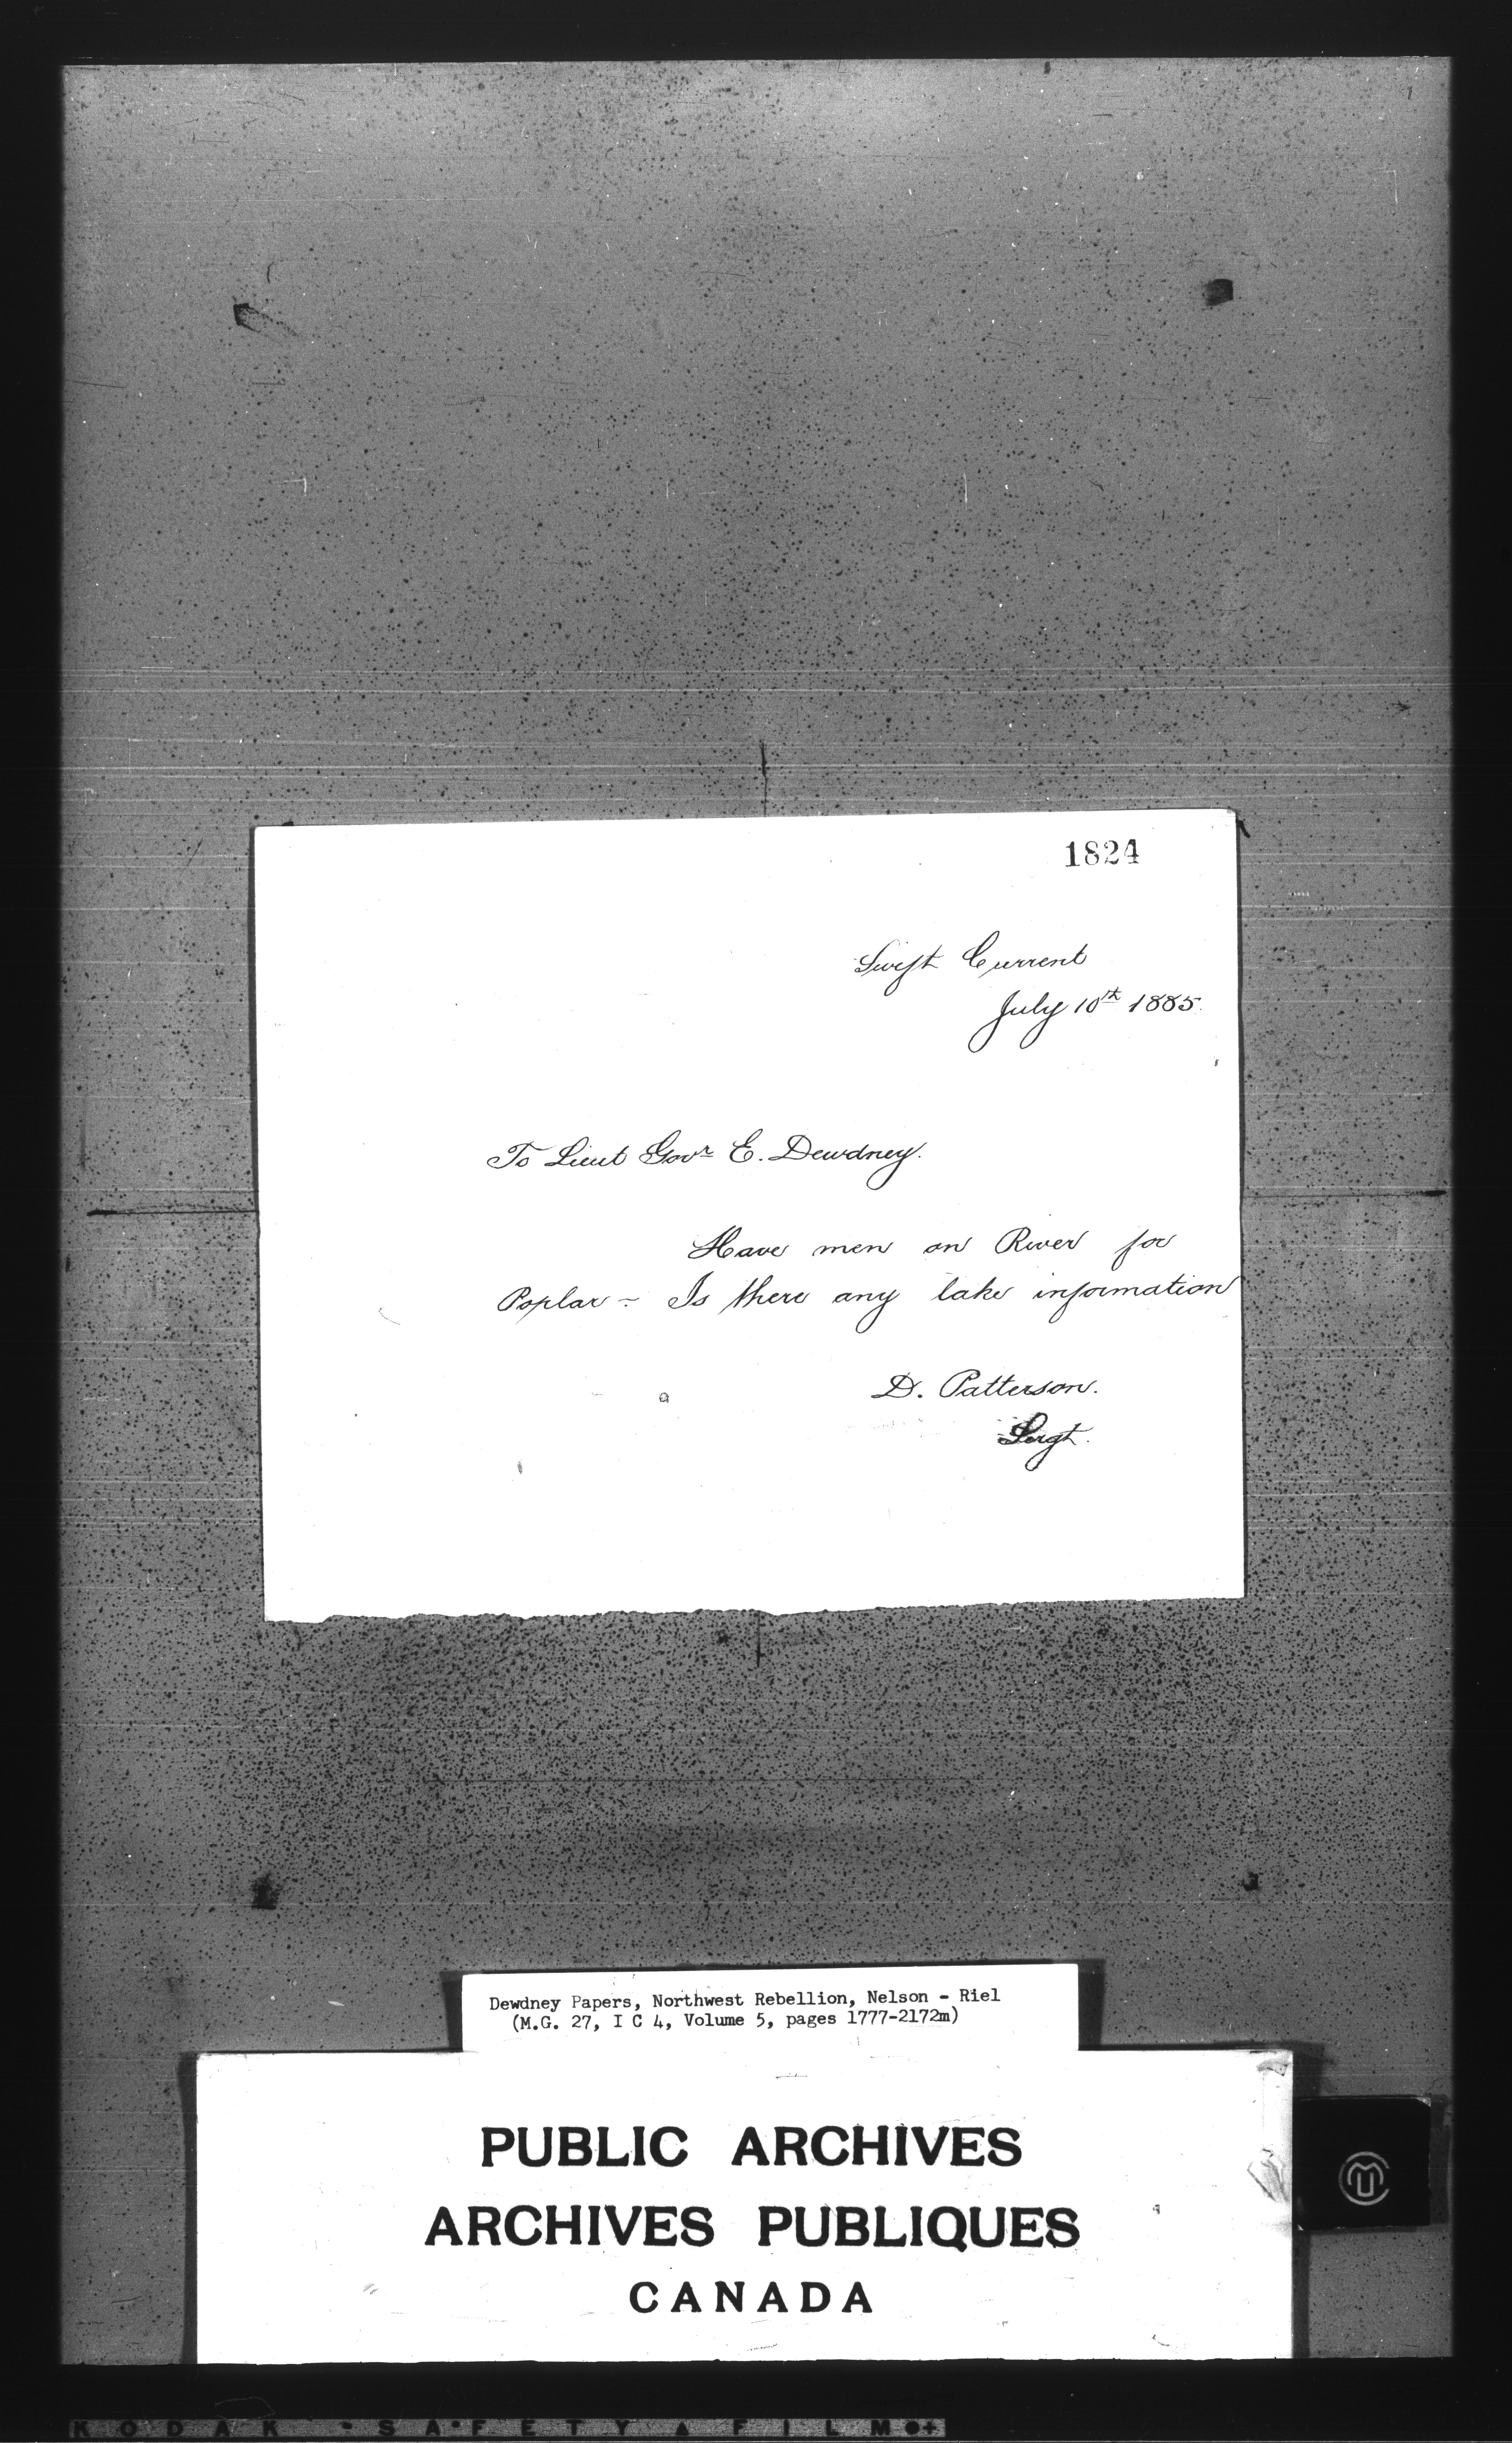 1824
Swift Current
July 10th 1885.
To Lieut Govr E. Dewdney.
Have men on River for
Poplar - Is there any late information
D. Patterson.
Sergt.
Dewdney Papers, Northwest Rebellion, Nelson - Riel
(M.G. 27, I C 4, Volume 5, pages 1777-2172m)
PUBLIC ARCHIVES
ARCHIVES PUBLIQUES
CANADA
KODAK SAFETY FILM